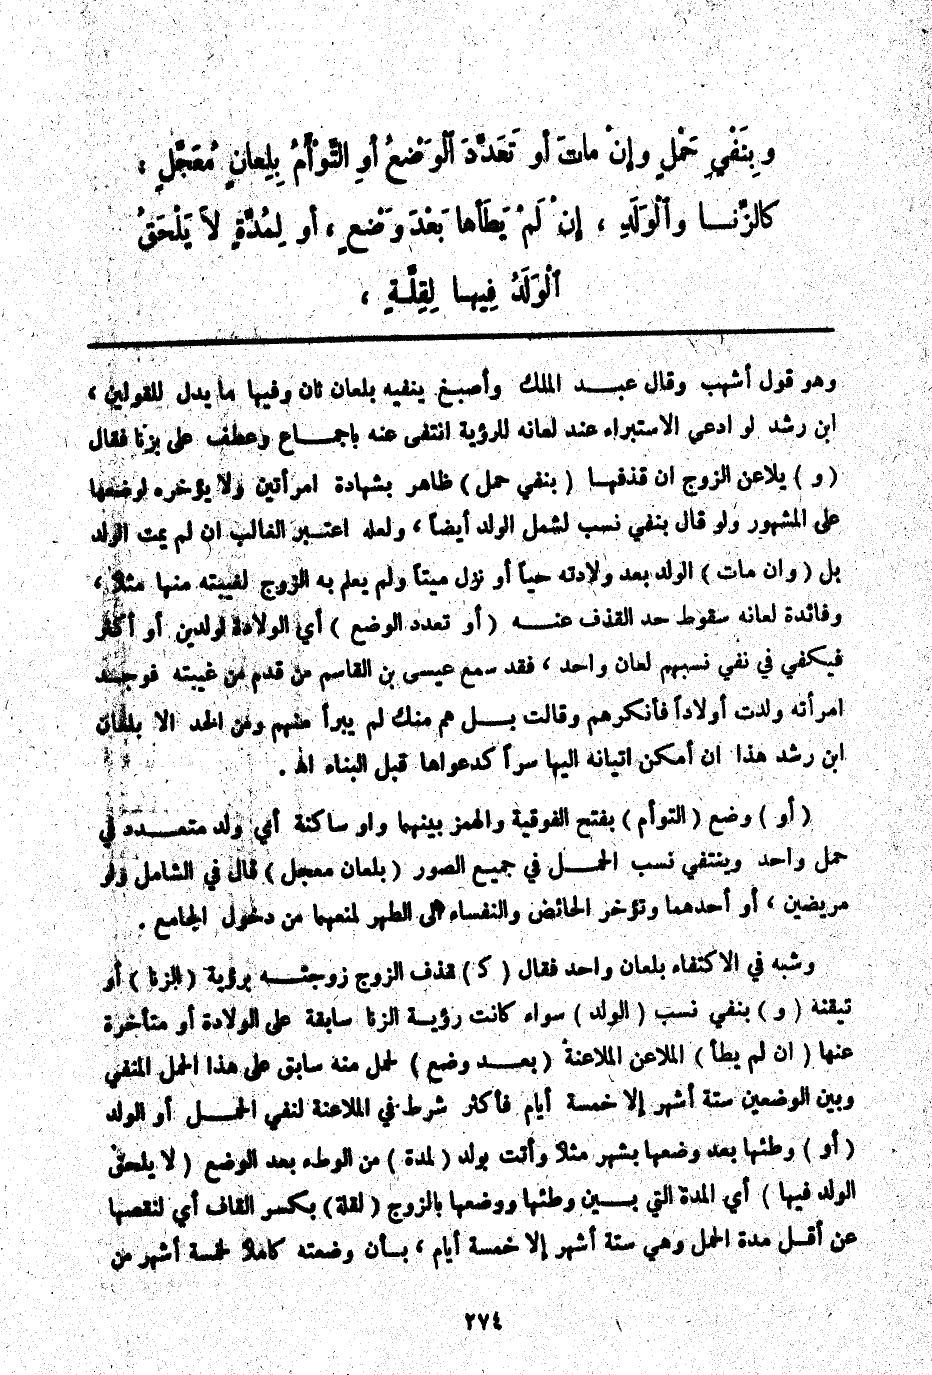 وبِنَفْيِ حَمْلٍ وإنْ ماتَ أو تَعَدَّدَ ٱلْوَضْعُ أوِ التَّوْأَمُ بِلِعانٍ مُعَجَّلٍ ؛
كالزِّنــا وٱلْوَلَدِ ، إنْ لَمْ يَطَأْها بَعْدَ وَضْعٍ ، أو لِمُدَّةٍ لاَ يَلْحَقُ
ٱلْوَلَدُ فِيهــا لِقِلَّــةٍ ،
وهو قول أشهب وقال عبــد الملك وأصبــغ ينفيه بلعان ثان وفيها ما يدل للقولين ،
ابن رشد لو ادعى الاستبراء عند لعانه للرؤية انتفى عنه باجمــاع وعطف على بزنا فقال
( و ) يلاعن الزوج ان قذفهــا ( بنفي حمل ) ظاهر بشهادة امرأتين ولا يؤخره لوضعها
على المشهور ولو قال بنفي نسب لشمل الولد أيضاً ، ولعله اعتــبر الغالب ان لم يمت الولد
بل ( وان مات ) الولد بعد ولادته حياً أو نزل ميتاً ولم يعلم به الزوج لغيبته منها مثلاً ،
وفائدة لعانه سقوط حد القذف عنــه ( أو تعدد الوضع ) أي الولادة لولدين أو أكثر
فيكفي في نفي نسبهم لعان واحد ، فقد سمع عيسى بن القاسم من قدم من غيبته فوجــد
امرأته ولدت أولاداً فأنكرهم وقالت بــل هم منك لم يبرأ منهم ومن الحد الا بلعان
ابن رشد هذا ان أمكن اتيانه اليها سراً كدعواها قبل البناء اهـ .
( أو ) وضع ( التوأم ) بفتح الفوقية والهمز بينهما واو ساكنة أي ولد متعــدد في
حمل واحد وينتفي نسب الحمــل في جميع الصور ( بلعان معجل ) قال في الشامل ولو
مريضين ، أو أحدهما وتؤخر الحائض والنفساء الى الطهر لمنعهما من دخول الجامع .
وشبه في الاكتفاء بلعان واحد فقال ( كـ ) قذف الزوج زوجتــه برؤية ( الزنا ) أو
تيقنه ( و ) بنفي نسب ( الولد ) سواء كانت رؤيــة الزنا سابقة على الولادة أو متأخرة
عنها ( ان لم يطأ ) الملاعن الملاعنة ( بعــد وضع ) لحمل منه سابق على هذا الحمل المنفي
وبين الوضعين ستة أشهر إلا خمسة أيام فأكثر شرط في الملاعنة لنفي الحمــل أو الولد
( أو ) وطئها بعد وضعها بشهر مثلاً وأتت بولد ( لمدة ) من الوطء بعد الوضع ( لا يلحق
الولد فيها ) أي المدة التي بــين وطئها ووضعها بالزوج ( لقلة ) بكسر القاف أي لنقصها
عن أقــل مدة الحمل وهي ستة أشهر إلا خمسة أيام ، بــأن وضعته كاملاً لخمسة أشهر من
٢٧٤